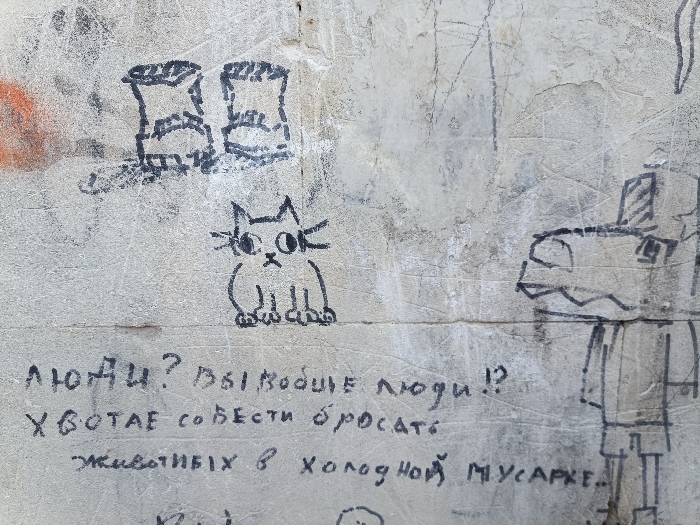 люди? вы вообще люди!?
хвотае совести бросать
животных в холодной мусарке..